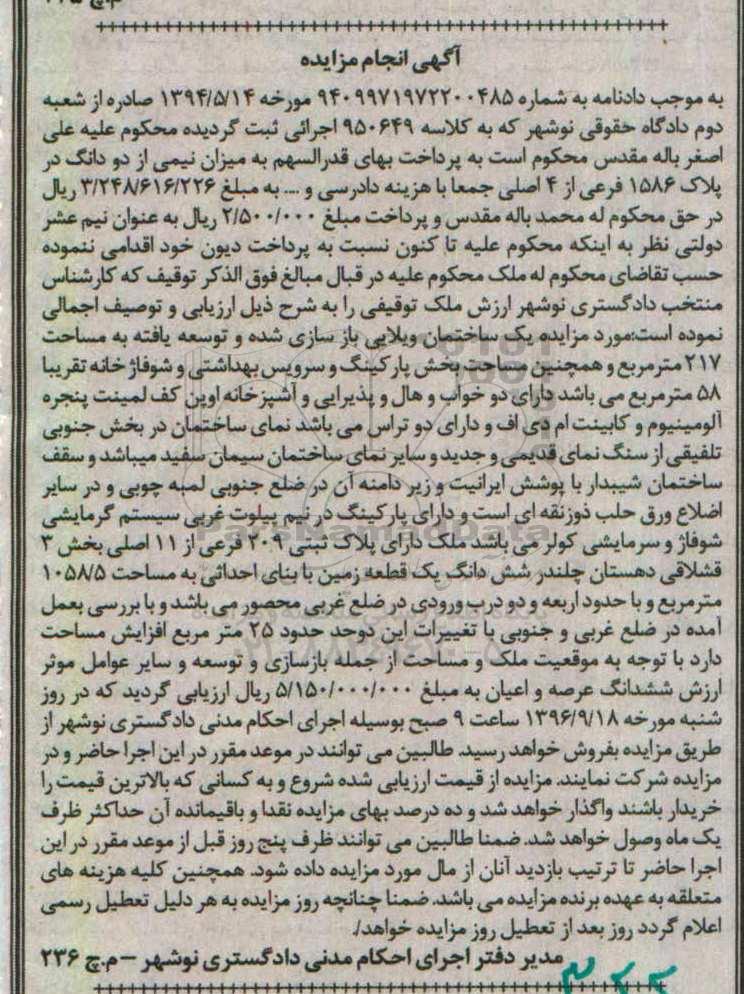 آگهی انجام مزایده
به موجب دادنامه به شماره ۹۴۰۹۹۷۱۹۷۲۲۰۰۴۸۵ مورخه ۱۳۹۴/۵/۱۴ صادره از شعبه
دوم دادگاه حقوقی نوشهر که به کلاسه ۹۵۰۶۴۹ اجرائی ثبت گردیده محکوم علیه علی
اصغر باله مقدس محکوم است به پرداخت بهای قدرالسهم به میزان نیمی از دو دانگ در
پلاک ۱۵۸۶ فرعی از ۴ اصلی جمعا با هزینه دادرسی و .... به مبلغ ۳/۲۴۸/۶۱۶/۲۲۶ ریال
در حق محکوم له محمد باله مقدس و پرداخت مبلغ ۲/۵۰۰/۰۰۰ ریال به عنوان نیم عشر
دولتی نظر به اینکه محکوم علیه تا کنون نسبت به پرداخت دیون خود اقدامی ننموده
حسب تقاضای محکوم له ملک محکوم علیه در قبال مبالغ فوق الذکر توقیف که کارشناس
منتخب دادگستری نوشهر ارزش ملک توقیفی را به شرح ذیل ارزیابی و توصیف اجمالی
نموده است:مورد مزایده یک ساختمان ویلایی باز سازی شده و توسعه یافته به مساحت
۲۱۷ مترمربع و همچنین مساحت بخش پارکینگ و سرویس بهداشتی و شوفاژخانه تقریبا
۵۸ مترمربع می باشد دارای دو خواب و هال و پذیرایی و آشپزخانه اوپن کف لمینت پنجره
آلومینیوم و کابینت ام دی اف و دارای دو تراس می باشد نمای ساختمان در بخش جنوبی
تلفیقی از سنگ نمای قدیمی و جدید و سایر نمای ساختمان سیمان سفید میباشد و سقف
ساختمان شیبدار با پوشش ایرانیت و زیر دامنه آن در ضلع جنوبی لمبه چوبی و در سایر
اضلاع ورق حلب ذوزنقه ای است و دارای پارکینگ در نیم پیلوت غربی سیستم گرمایشی
شوفاژ و سرمایشی کولر می باشد ملک دارای پلاک ثبتی ۲۰۹ فرعی از ۱۱ اصلی بخش ۳
قشلاقی دهستان چلندر شش دانگ یک قطعه زمین با بنای احداثی به مساحت ۱۰۵۸/۵
مترمربع و با حدود اربعه و دو درب ورودی در ضلع غربی محصور می باشد و با بررسی بعمل
آمده در ضلع غربی و جنوبی با تغییرات این دوحد حدود ۲۵ متر مربع افزایش مساحت
دارد با توجه به موقعیت ملک و مساحت از جمله بازسازی و توسعه و سایر عوامل موثر
ارزش ششدانگ عرصه و اعیان به مبلغ ۵/۱۵۰/۰۰۰/۰۰۰ ریال ارزیابی گردید که در روز
شنبه مورخه ۱۳۹۶/۹/۱۸ ساعت ۹ صبح بوسیله اجرای احکام مدنی دادگستری نوشهر از
طریق مزایده بفروش خواهد رسید. طالبین می توانند در موعد مقرر در این اجرا حاضر و در
مزایده شرکت نمایند. مزایده از قیمت ارزیابی شده شروع و به کسانی که بالاترین قیمت را
خریدار باشند واگذار خواهد شد و ده درصد بهای مزایده نقدا و باقیمانده آن حداکثر ظرف
یک ماه وصول خواهد شد. ضمنا طالبین می توانند ظرف پنج روز قبل از موعد مقرر در این
اجرا حاضر تا ترتیب بازدید آنان از مال مورد مزایده داده شود. همچنین کلیه هزینه های
متعلقه به عهده برنده مزایده می باشد. ضمنا چنانچه روز مزایده به هر دلیل تعطیل رسمی
اعلام گردد روز بعد از تعطیل روز مزایده خواهد/.
مدیر دفتر اجرای احکام مدنی دادگستری نوشهر – م.چ ۲۳۶